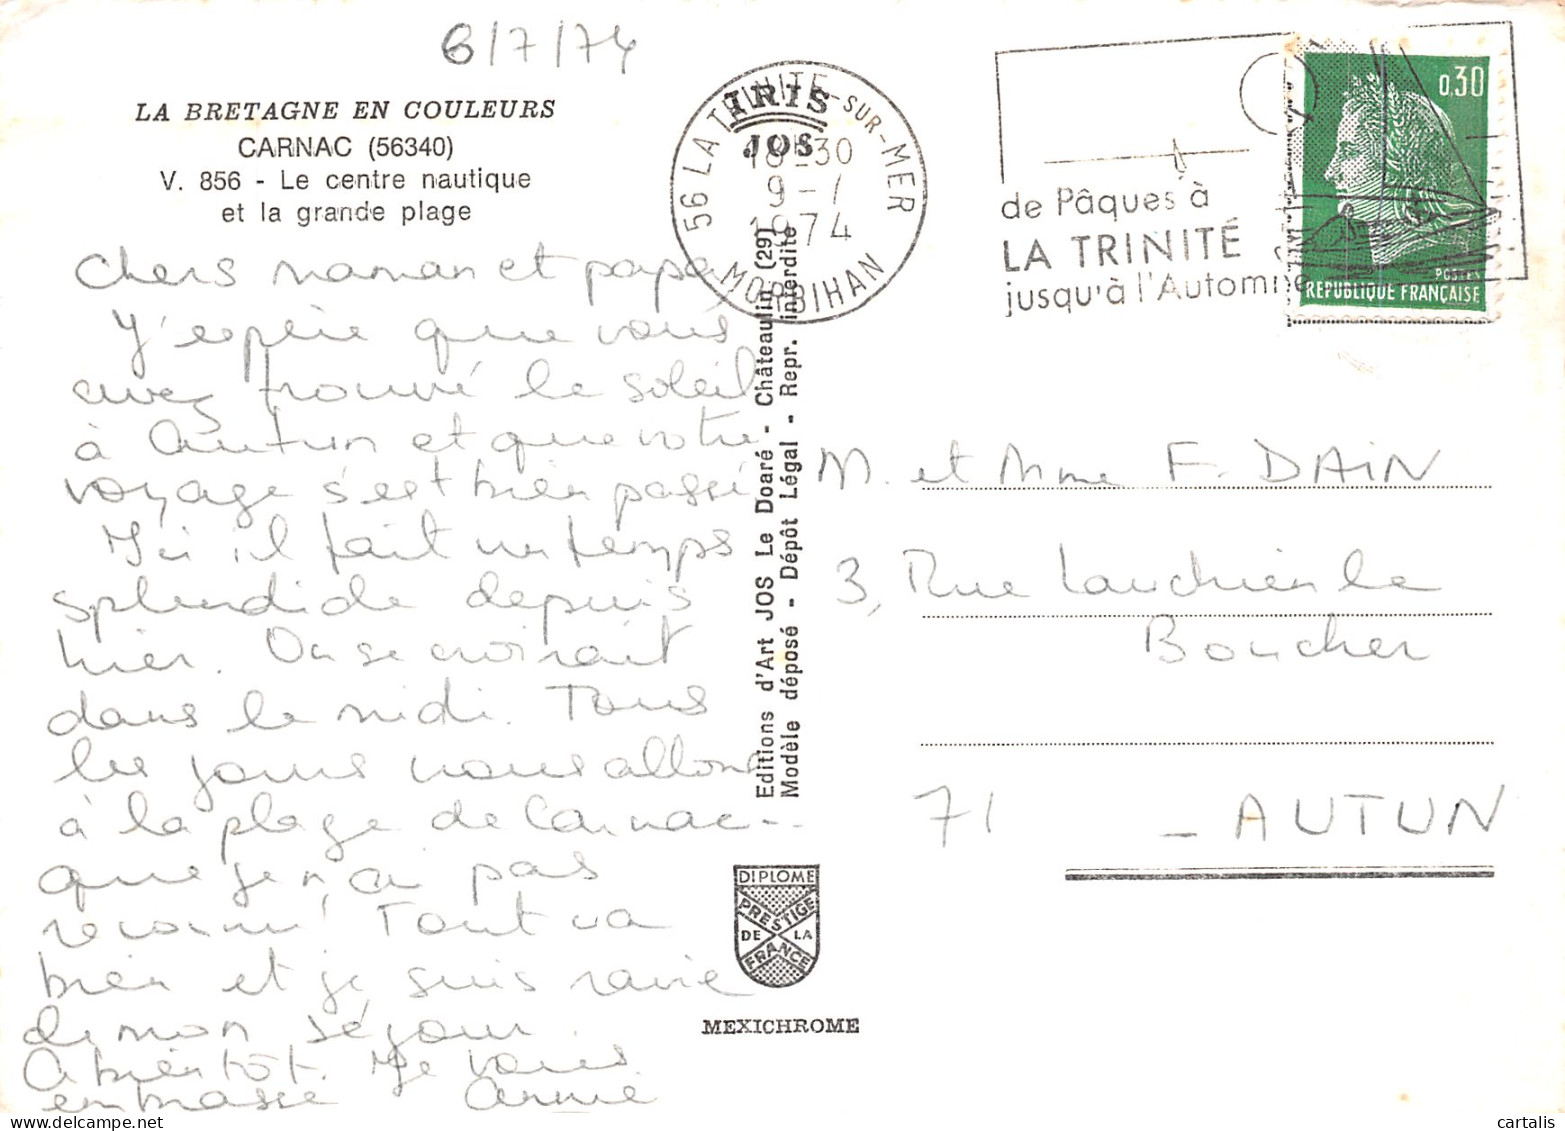 6/7/74
LA BRETAGNE EN COULEURS
CARNAC (56340)
V. 856 - Le centre nautique
et la grande plage
Chers maman et papa,
J'espère que vous
avez trouvé le soleil
à Autun et que votre
voyage s'est bien passé.
Ici il fait un temps
splendide depuis
hier. On se croirait
dans le midi. Tous
les jours nous allons
à la plage de Carnac...
que je n'ai pas
reconnu! Tout va
bien et je suis ravie
de mon séjour.
A bientôt. Je vous
embrasse Annie
IRIS
JOS
56 LA TRINITE-SUR-MER
18H30
9-7
1974
MORBIHAN
Editions d'Art JOS Le Doaré - Châteaulin (29)
Modèle déposé - Dépôt Légal - Repr. interdite
DIPLOME
PRESTIGE
DE LA
FRANCE
MEXICHROME
de Pâques à
LA TRINITÉ S/MER
jusqu'à l'Automne
0,30
POSTES
REPUBLIQUE FRANÇAISE
M. et Mme F. DAIN
3, Rue Lauchien le
Boucher
71 - AUTUN
cartalis